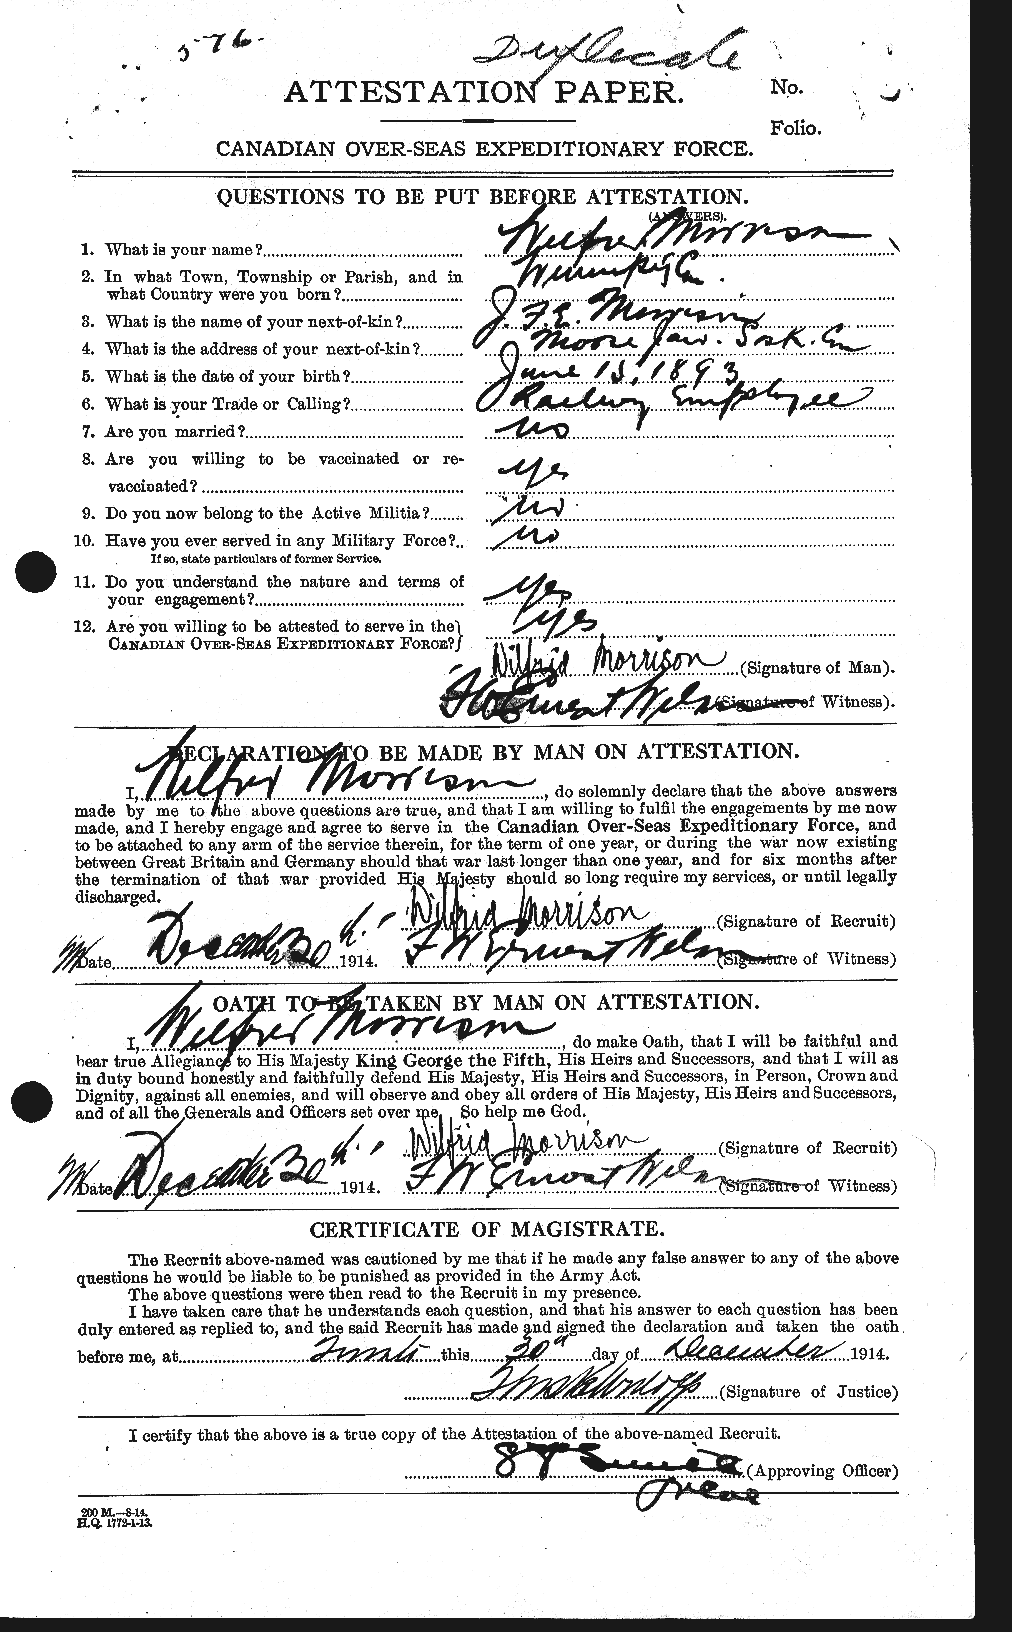 576.
Duplicate
ATTESTATION PAPER.
No.
Folio.
CANADIAN OVER-SEAS EXPEDITIONARY FORCE.
QUESTIONS TO BE PUT BEFORE ATTESTATION.
(ANSWERS).
1. What is your name? Wilfrid Morrison
2. In what Town, Township or Parish, and in
what Country were you born? Winnipeg Can.
3. What is the name of your next-of-kin? J. F. E. Morrison
4. What is the address of your next-of-kin? Moose Jaw. Sask. Can
5. What is the date of your birth? June 15, 1893
6. What is your Trade or Calling? Railway Employee
7. Are you married? No
8. Are you willing to be vaccinated or re-
vaccinated? Yes
9. Do you now belong to the Active Militia? No
10. Have you ever served in any Military Force? No
If so, state particulars of former Service.
11. Do you understand the nature and terms of
your engagement? Yes
12. Are you willing to be attested to serve in the
CANADIAN OVER-SEAS EXPEDITIONARY FORCE? Yes
Wilfrid Morrison (Signature of Man).
Ernest (Signature of Witness).
DECLARATION TO BE MADE BY MAN ON ATTESTATION.
I, Wilfrid Morrison, do solemnly declare that the above answers
made by me to the above questions are true, and that I am willing to fulfil the engagements by me now
made, and I hereby engage and agree to serve in the Canadian Over-Seas Expeditionary Force, and
to be attached to any arm of the service therein, for the term of one year, or during the war now existing
between Great Britain and Germany should that war last longer than one year, and for six months after
the termination of that war provided His Majesty should so long require my services, or until legally
discharged.
Wilfrid Morrison (Signature of Recruit)
Date December 30 1914. F W Ernest (Signature of Witness)
OATH TO BE TAKEN BY MAN ON ATTESTATION.
I, Wilfrid Morrison, do make Oath, that I will be faithful and
bear true Allegiance to His Majesty King George the Fifth, His Heirs and Successors, and that I will as
in duty bound honestly and faithfully defend His Majesty, His Heirs and Successors, in Person, Crown and
Dignity, against all enemies, and will observe and obey all orders of His Majesty, His Heirs and Successors,
and of all the Generals and Officers set over me. So help me God.
Wilfrid Morrison (Signature of Recruit)
Date December 30 1914. F W Ernest (Signature of Witness)
CERTIFICATE OF MAGISTRATE.
The Recruit above-named was cautioned by me that if he made any false answer to any of the above
questions he would be liable to be punished as provided in the Army Act.
The above questions were then read to the Recruit in my presence.
I have taken care that he understands each question, and that his answer to each question has been
duly entered as replied to, and the said Recruit has made and signed the declaration and taken the oath
before me, at this 30th day of December 1914.
(Signature of Justice)
I certify that the above is a true copy of the Attestation of the above-named Recruit.
(Approving Officer)
200 M.—8-14.
H.Q. 1772-1-13.